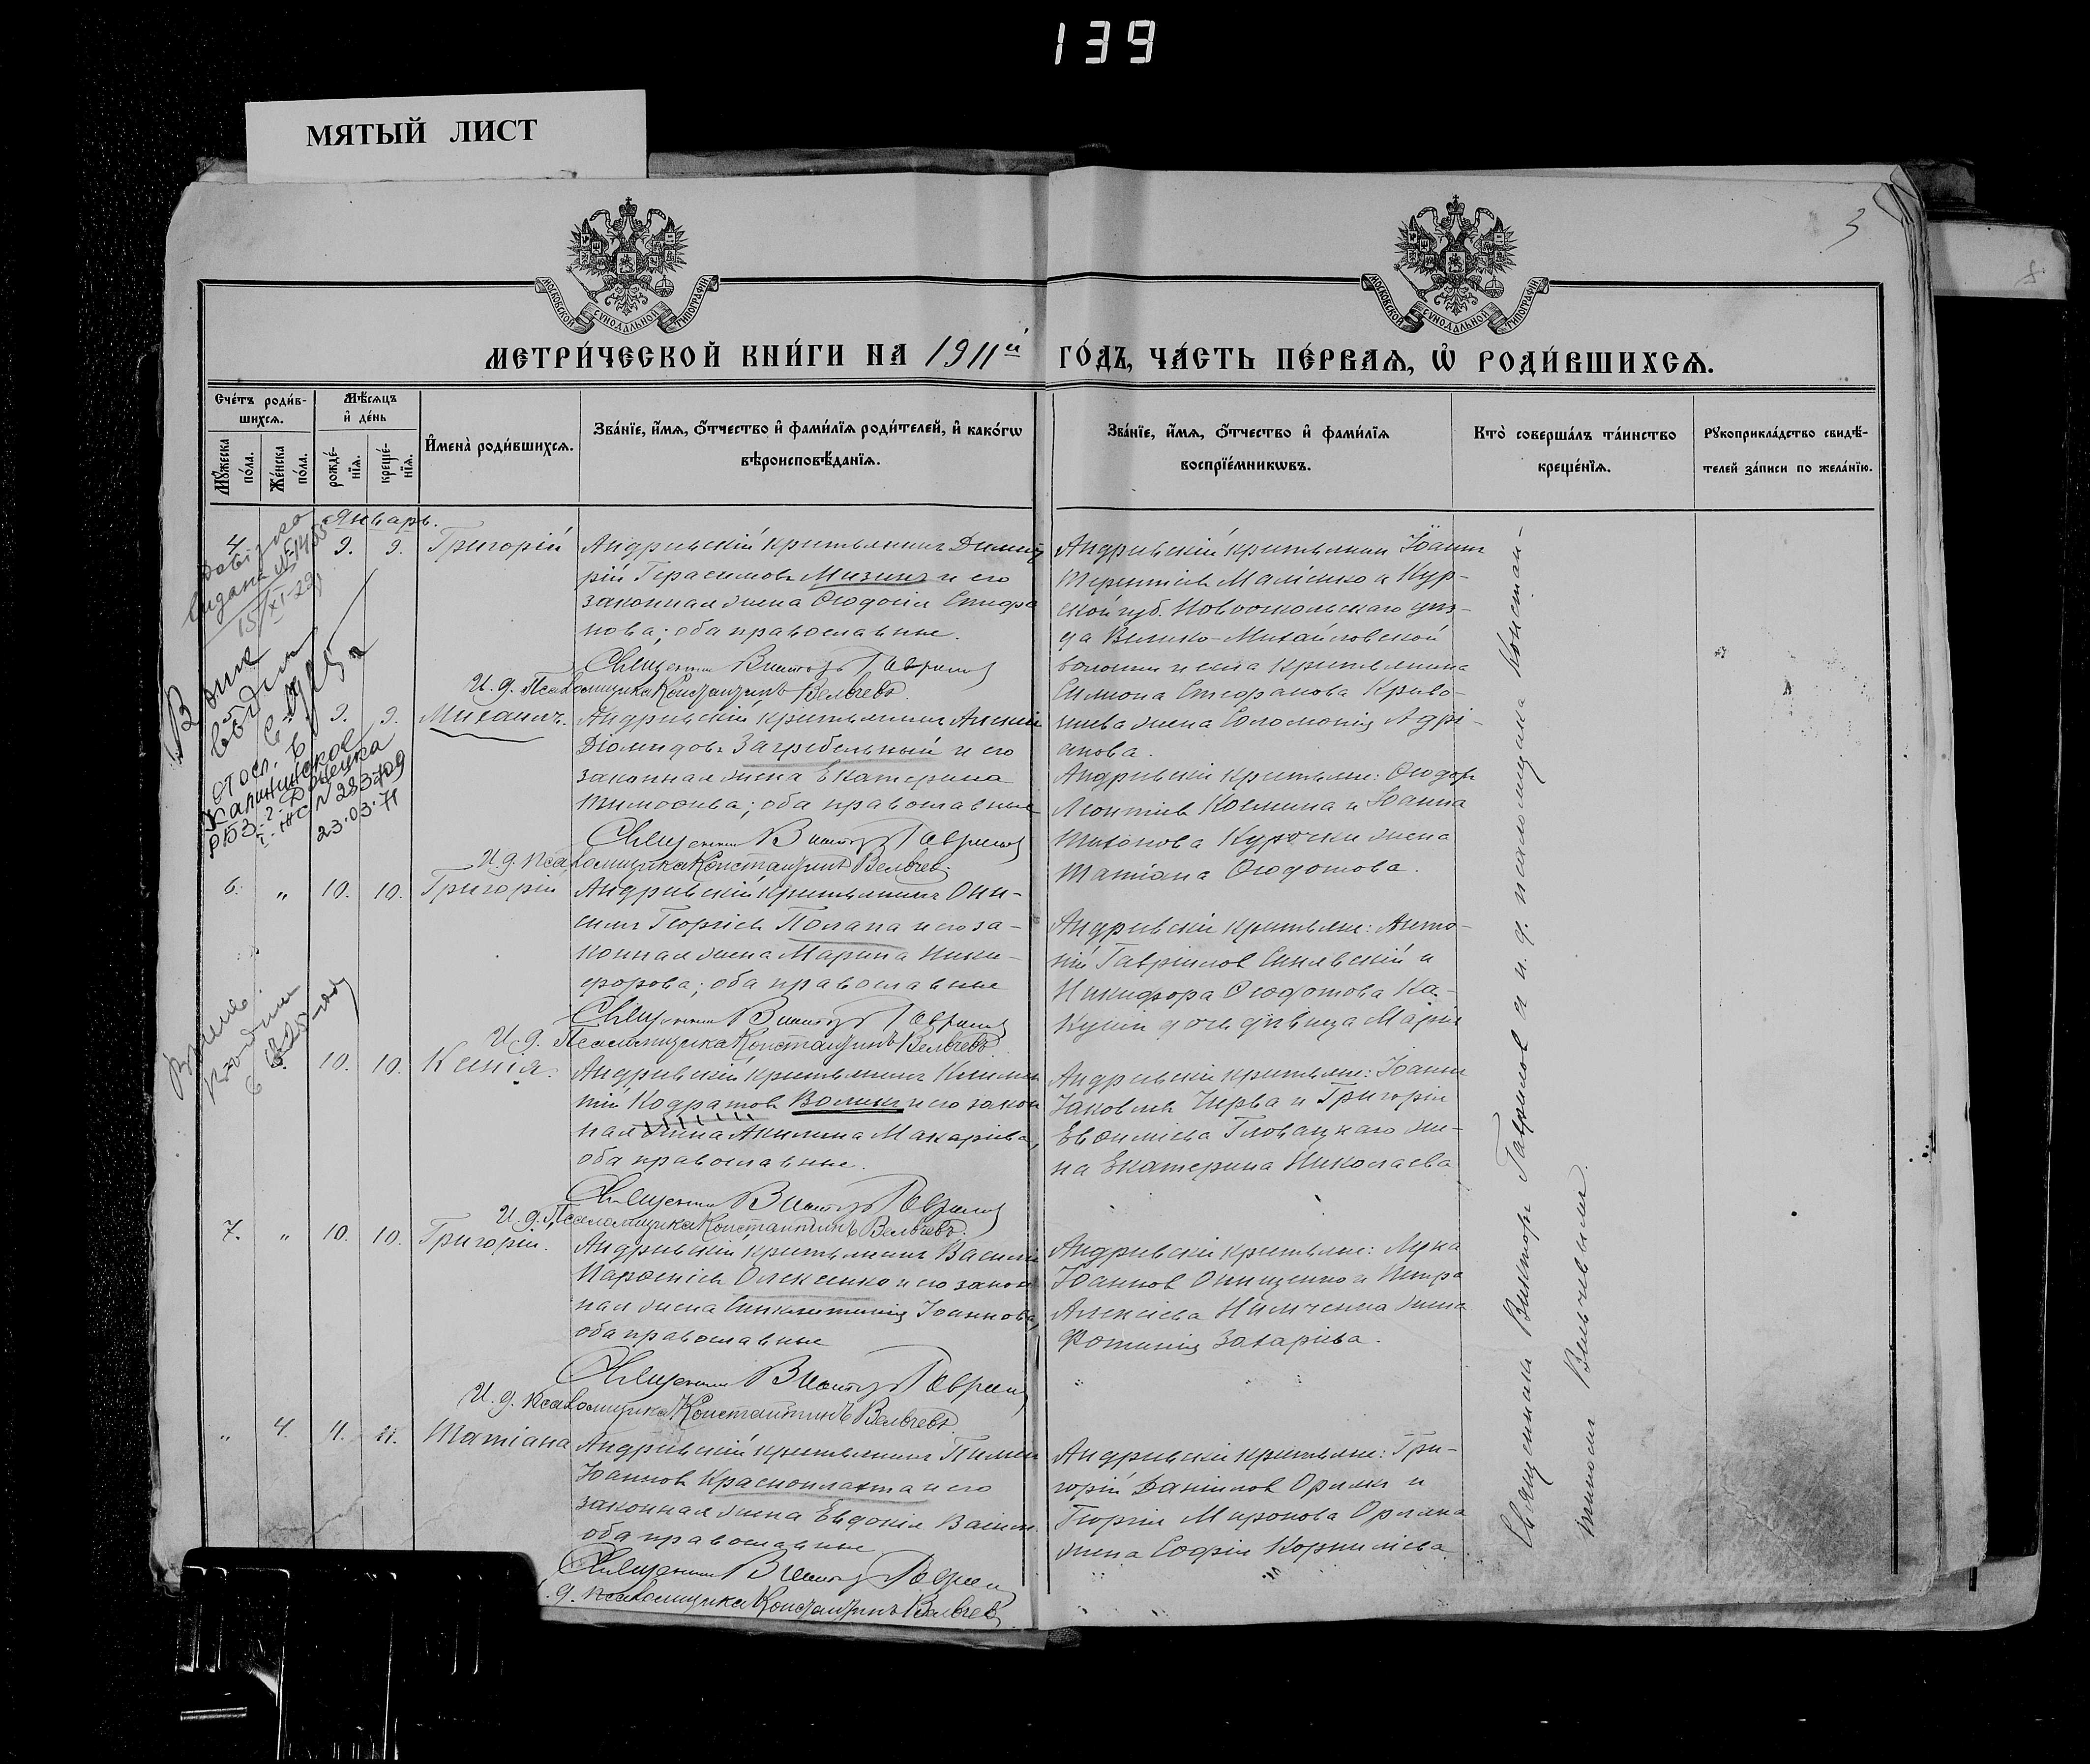 139
МЯТЫЙ ЛИСТ
3
МОСКОВСКОЙ СУНОДАЛЬНОЙ ТИПОГРАФІИ
МОСКОВСКОЙ СУНОДАЛЬНОЙ ТИПОГРАФІИ
МЕТРИ́ЧЕСКОЙ КНИ́ГИ НА 1911й ГО́ДЪ, ЧА́СТЬ ПЕ́РВАѦ, Ѡ РОДИ́ВШИХСѦ.
Счétъ роди́в-
шихсѧ.
Мѣ́сѧцъ
и҆ де́нь
Мꙋ́жеска
по́ла.
Же́нска
по́ла.
рожде́-
нїѧ.
креще́-
нїѧ.
И҆мена̀ роди́вшихсѧ.
Зва́нїе, и҆́мѧ, ѻ҆́тчество и҆ фами́лїѧ роди́телей, и҆ како́гѡ
вѣроисповѣ́данїѧ.
Зва́нїе, и҆́мѧ, ѻ҆́тчество и҆ фами́лїѧ
воспрїе́мникѡвъ.
Кто̀ соверша́лъ та́инство
креще́нїѧ.
Рꙋкоприкла́дство свидѣ́-
телей за́писи по жела́нїю.
Январь.
4 9. 9. Григорій
Андреевскій крестьянинъ Димит
рій Герасимовъ Мизинъ и его
законная жена Ѳеодосія Стефа
нова; оба православные.
Священникъ Викторъ Гавриловъ
И. д. Псаломщика Константинъ Вельчевъ.
Андреевскій крестьянинъ Іоаннъ
Терентіевъ Малѣенко и Кур-
ской губ. Новооскольскаго уѣз-
да Велико-Михайловской
волости и села крестьянина
Симона Стефанова Криво-
шеева жена Соломонія Адрі-
анова.
5 9. 9. Михаилъ.
Андреевскій крестьянинъ Алексій
Діомидовъ Загребельный и его
законная жена Екатерина
Тимоѳеева; оба православные
Священникъ Викторъ Гавриловъ
И. д. псаломщика Константинъ Вельчев.
Андреевскіе крестьяне: Ѳеодоръ
Леонтіевъ Косьмина и Іоанна
Тихонова Курочки жена
Татіана Ѳеодотова.
6. " 10. 10. Григорій
Андреевскій крестьянинъ Они-
симъ Георгіевъ Погана и его за-
конная жена Марина Ники-
форова; оба православные
Священникъ Викторъ Гавриловъ
И. д. Псаломщика Константинъ Вельчевъ.
Андреевскіе крестьяне: Анто-
ній Гавріиловъ Синявскій и
Никифора Ѳеодотова Ка-
куши дочь дѣвица Марія
3 10. 10. Ксенія.
Андреевскій крестьянинъ Климен
тій Кодратовъ Воликъ и его закон
ная жена Акилина Макаріева,
оба православные.
Священникъ Викторъ Гавриловъ
И. д. Псаломщика Константинъ Вельчевъ.
Андреевскіе крестьяне: Іоаннъ
Іаковлевъ Черва и Григорія
Евѳиміева Гловацкаго же-
на Екатерина Николаева
7. " 10. 10. Григорій.
Андреевскій крестьянинъ Василій
Парѳеніевъ Олексенко и его закон
ная жена Синклитикія Іоаннова,
оба православные
Священникъ Викторъ Гавриловъ
И. д. псаломщика Константинъ Вельчевъ.
Андреевскіе крестьяне: Лука
Іоанновъ Онищенко и Петра
Алексіева Ильченка жена
Фотинія Захаріева.
" 4. 11. 11. Татіана
Андреевскій крестьянинъ Пимен
Іоанновъ Красноплахта и его
законная жена Евдокія Васил.
оба православные
Священникъ Викторъ Гавриловъ
д. псаломщика Константинъ Вельчевъ
Андреевскіе крестьяне: Гри-
горій Даніиловъ Орликъ и
Георгія Миронова Орлика
жена Софія Корниліева
Священникъ Викторъ Гавриловъ и и. д. псаломщика Констан-
тинъ Вельчевымъ.
23.03.71